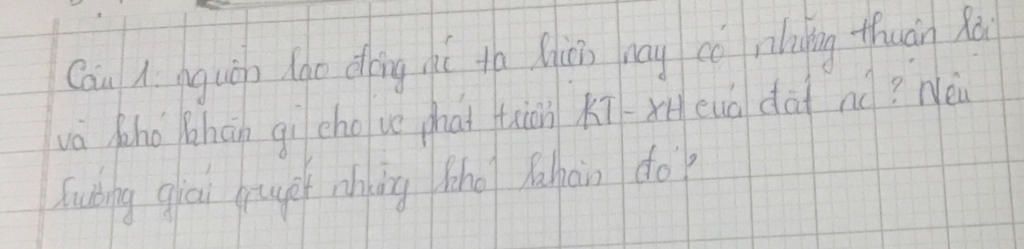 Câu 1. nguồn lao động nc ta hiện nay có những thuận lợi
và khó khăn gì cho vc phát triển KT - XH của đất nc? Nêu
hướng giải quyết những khó khăn đó?